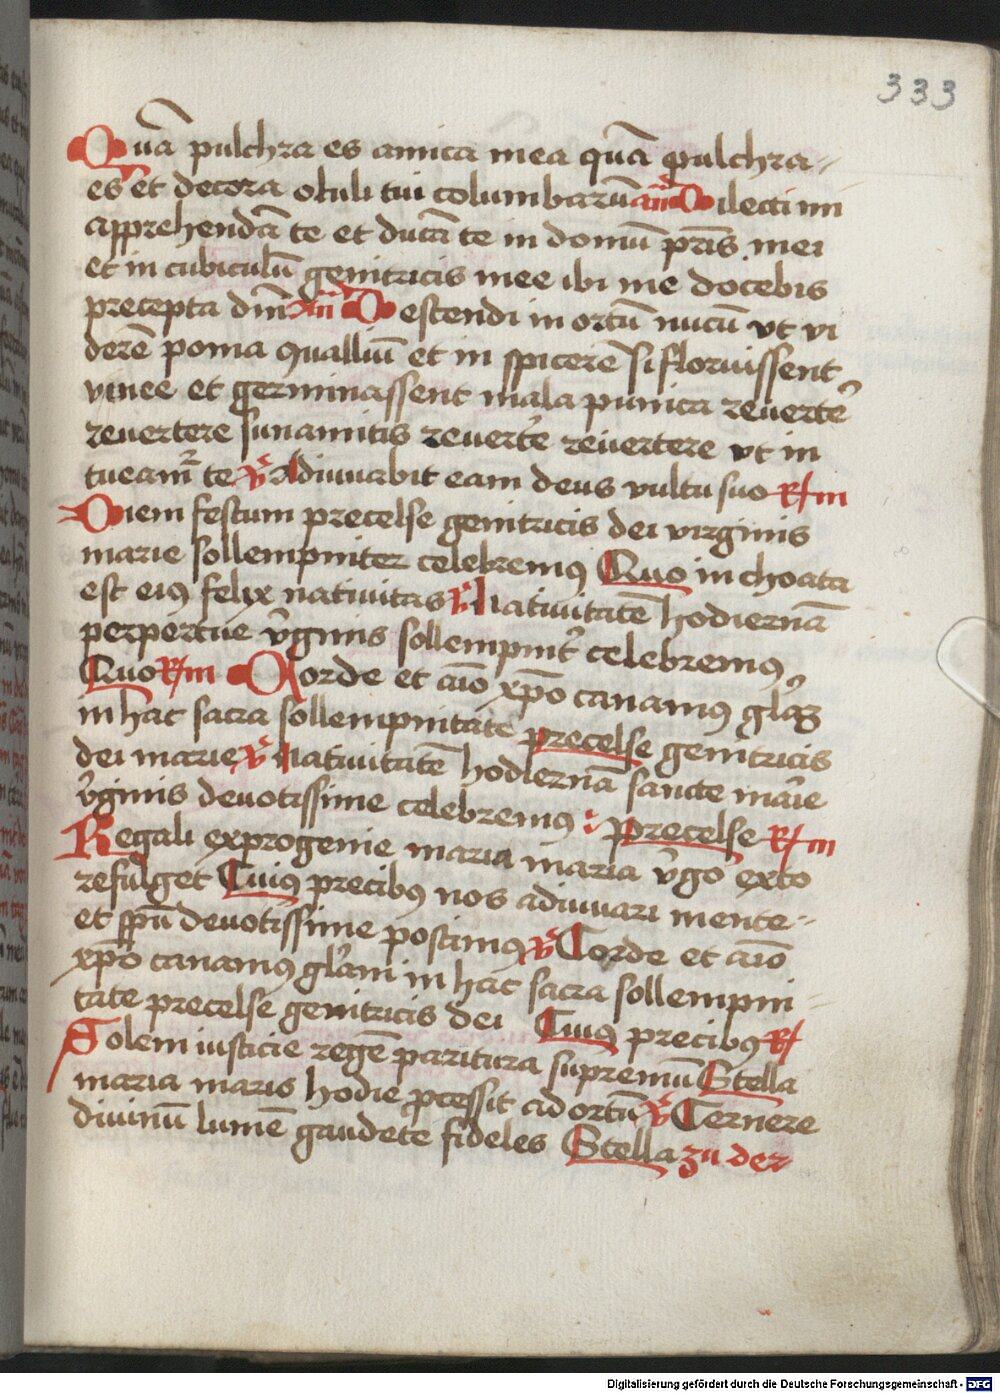 333
Quā pulchra es amica mea quā pulchra
es et decora oculi tui columbarū an̄ Dilecti mi
apprehendā te et ducā te in domū pr̄is mei
et in cubiculū genitricis mee ibi me docebis
precepta dn̄i an̄ Descendi in ortū nucū vt vi
derē poma qualliū et in spicerē si floruissent
vinee et germinassent mala punica reuerte᷑
reuertere sunamitis reuerte᷑e reuertere vt in
tueam᷑ te v̄ Adiuuabit eam deus vultu suo R/m
Diem festum precelse genitricis dei virginis
marie sollempniter celebremꝰ Quo inchoata
est eiꝰ felix natiuitas v̄ Natiuitatē hodiernā
perpertue v᷑ginis sollempnit᷑ celebremꝰ
Quo R/m Corde et aīo xp̄o canamꝰ gl̄az
in hac sacra sollempnitate precelse genitricis
dei marie v̄ Natiuitatē hodiernā sancte ma᷑ie
v᷑ginis deuotissime celebremꝰ : precelse R/m
Regali exprogenie maria maria v᷑go exto
refulget Cuiꝰ precibꝰ nos adiuuari mente
et sp̄u deuotissime poscimꝰ v̄ Corde et aīo
xp̄o canamꝰ gl᷑am in hac sacra sollempni
tate precelse genitricis dei Cuiꝰ precibꝰ R/
Solem iusticie regē paritura supremū Stella
maria maris hodie ꝓcessit ad ortū v̄ Cernere
diuinū lumē gaudete fideles Stella zu der
Digitalisierung gefördert durch die Deutsche Forschungsgemeinschaft - DFG